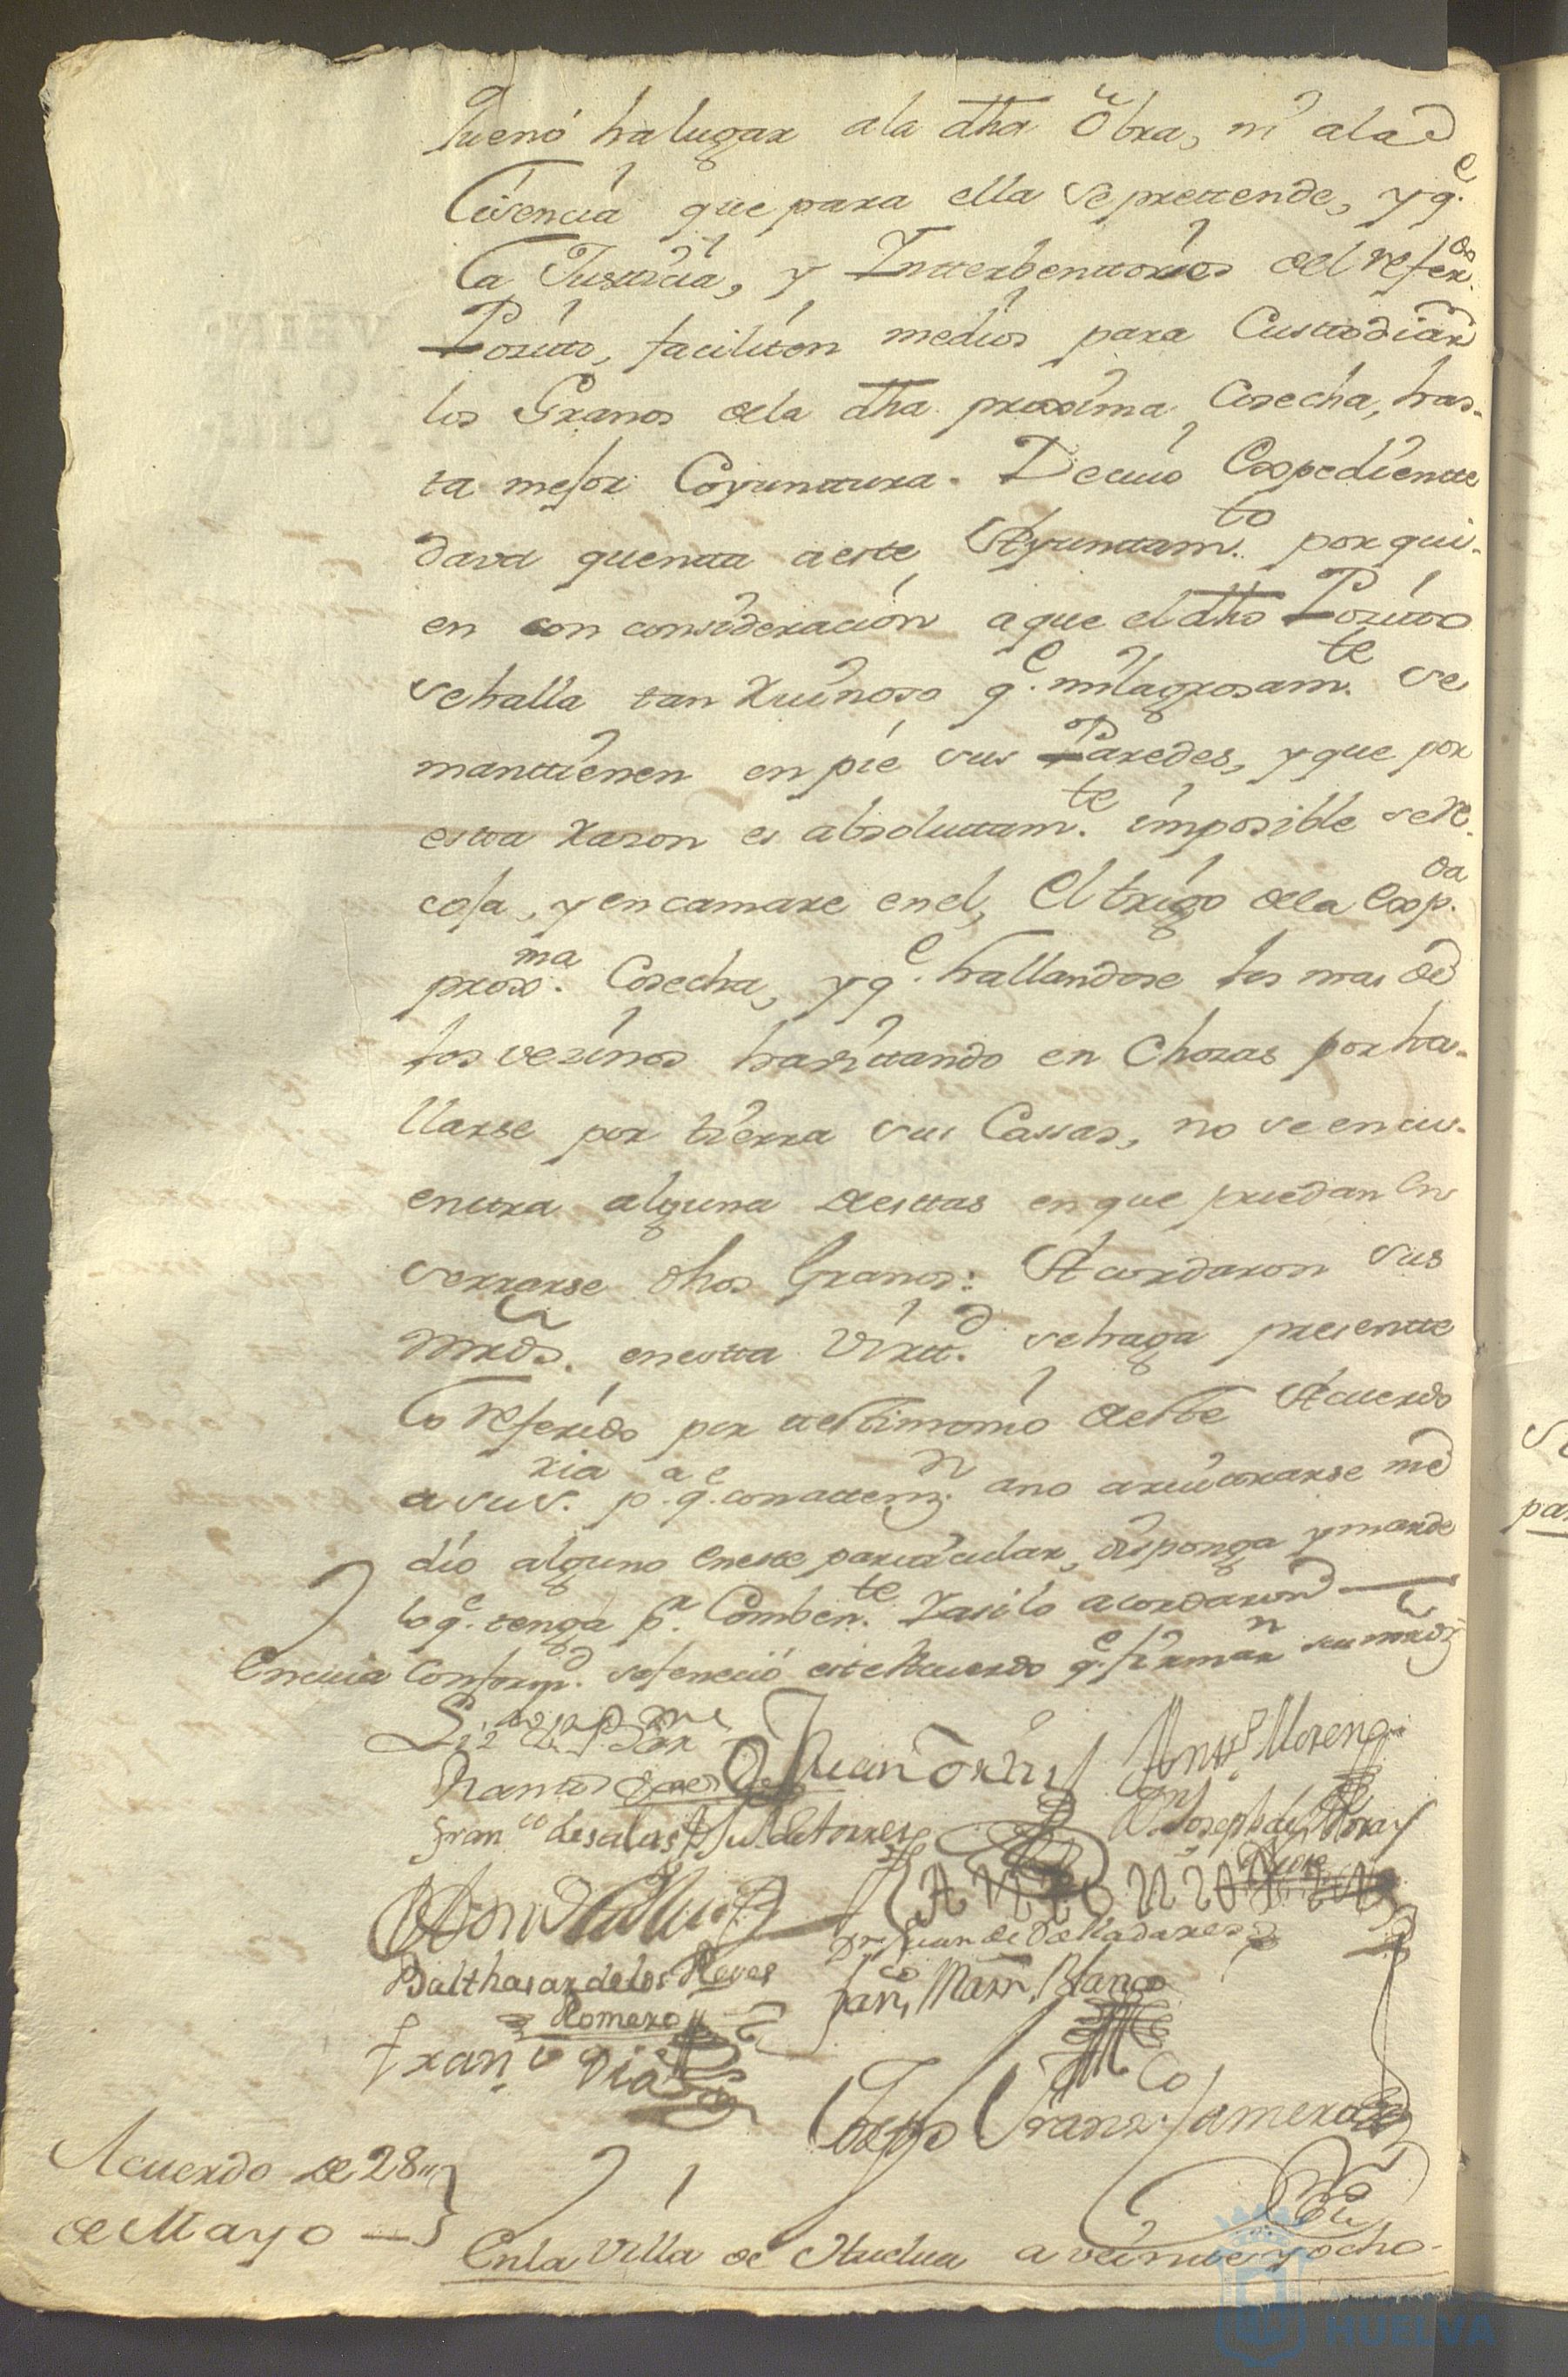 quenó ha lugar ala dha Obra, ni ala
Lisencia que para ella se prettende, y q.e
la Justticia, y Intterbenttores del refer.do
Posito, faciliten medios para Custtodiar
los Granos dela dha proxima Cosecha, has-
ta mejor Coyunttura. De cuio Expediente
dava quentta a este Ayunttam.to por qui-
en con consideracion a que el dho Positto
se halla tan Ruinoso q.e milagrosam.te se
manttienen en pie sus Paredes, y que por
esta Razon es absoluttam.te imposible se re-
coja, y encamare en el, El trigo dela Exp.da
prox.ma Cosecha, y q.e hallandose los mas de
los vezinos havittando en Chozas por ha-
llarse por tierra sus Cassas, no se encu-
entra alguna de esttas en que puedan En
serrarse dhos Granos: Acordaron sus
mrds. en esta Virtt.d se haga presentte
lo referido por testimonio de este Acuerdo
a su s.ria p.a q.e con atten.n a no arvitrarse me
dio alguno en este particular, disponga y mande
lo q.e tenga p.r Comben.te Y asi lo acordaron
En cuia Conform.d se feneció este Acuerdo q.e firmar.n sus mrds
Juan Ortiz Antt.o Moreno
Fran.co de salas Ju. de torres D.n Joseph de Mora
Balthasar de los Reyes D.n Juan de Valladares
Romero Fran.co Marn. Blanco
Fran.co Dias
Diego Franz.co Camerado
Acuerdo de 28
de Mayo
En la Villa de Huelva a veinte y ocho
HUELVA